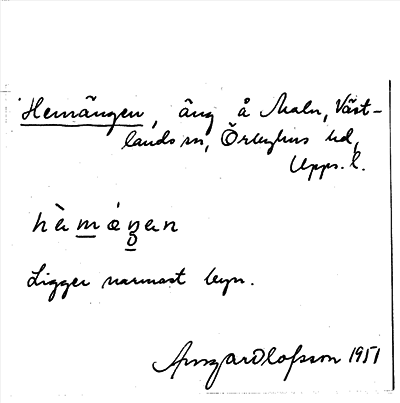 Hemängen, äng å Maln, Väst-
lands sn, Örbyhus hd,
Upps. l.
hèmáŋen
Ligger närmast byn.
Olofsson 1951